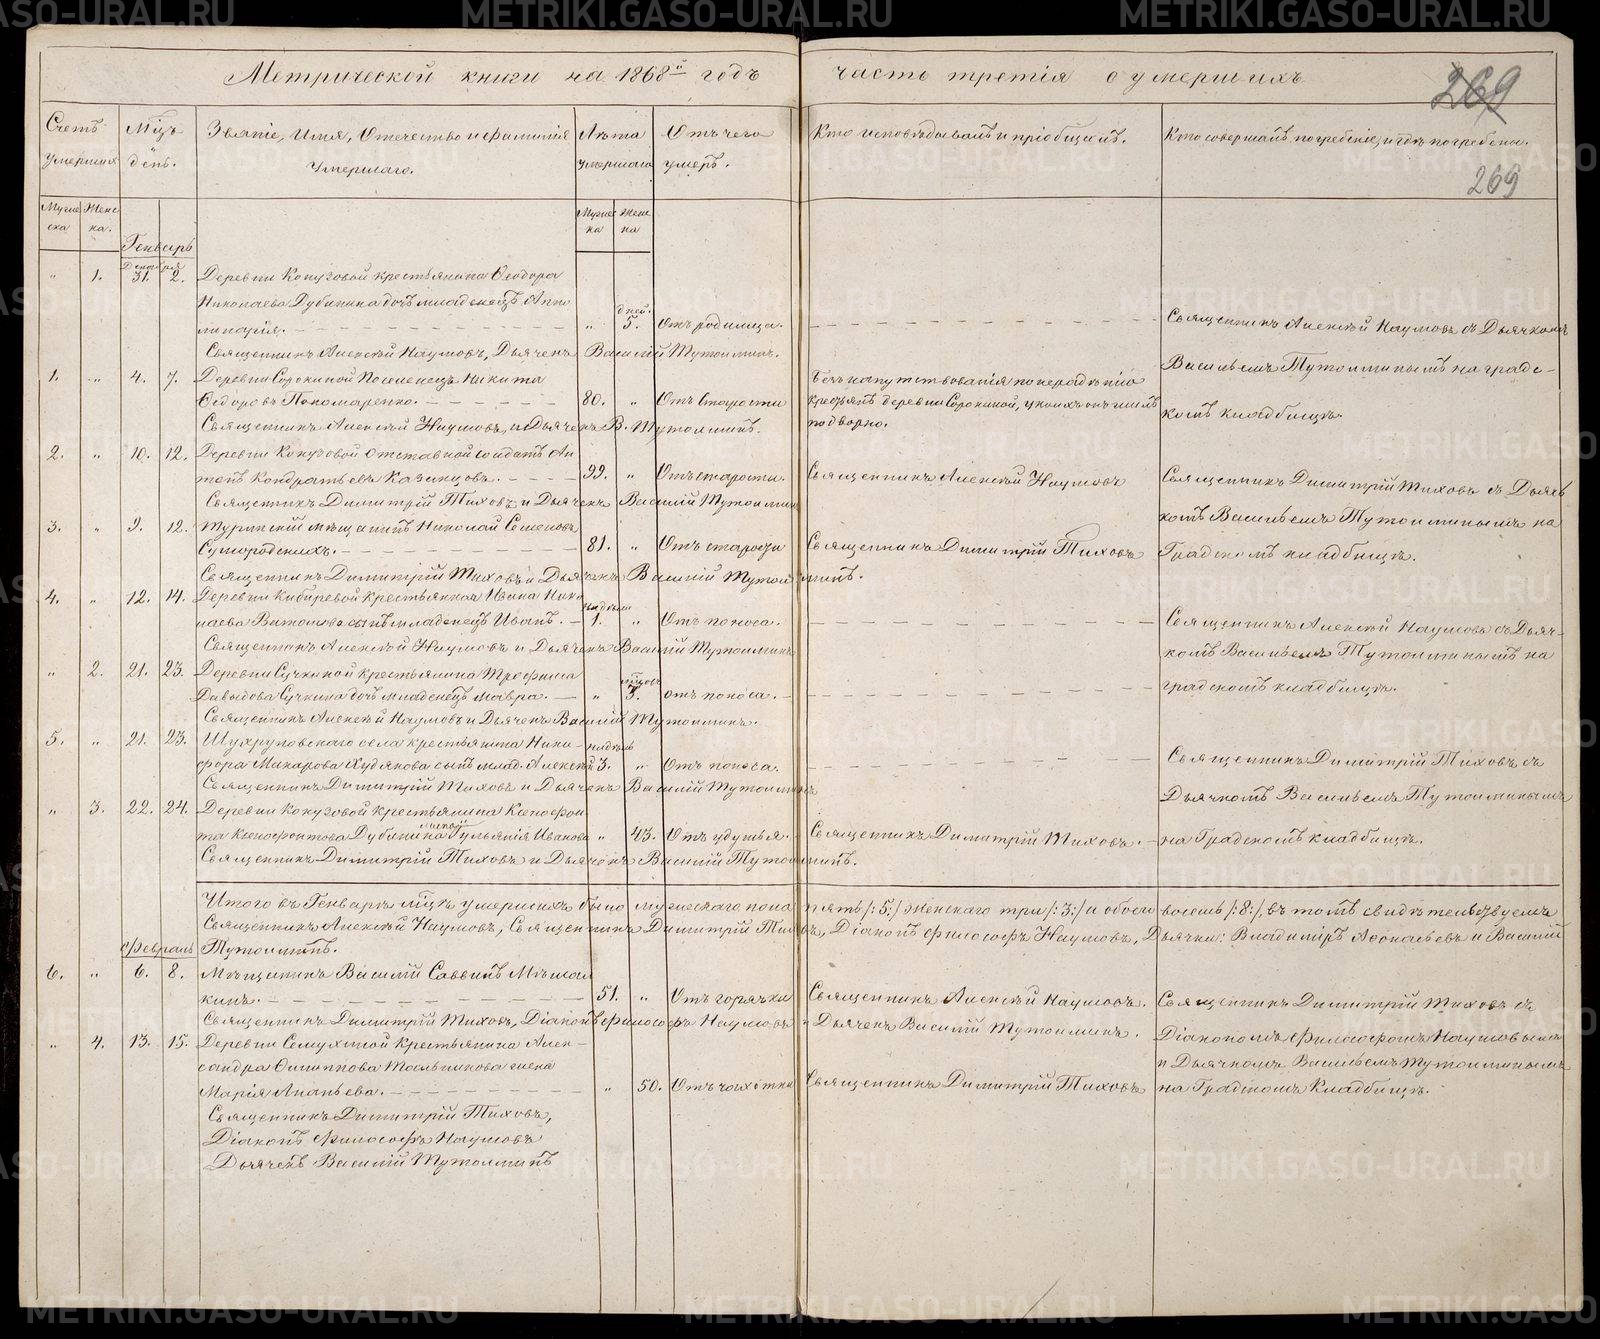 Метрической книги на 1868й годъ часть третія о умершихъ
269
269
Счетъ умершихъ
Мужеска
Женска.
Мцъ день.
Званіе, Имя, Отечество и фамилія Умершаго.
Лѣта умершаго
Мужеска
Женска
Отъ чего умеръ.
Кто исповѣдывалъ и пріобщалъ.
Кто совершалъ погребеніе, и гдѣ погребены.
Генварь
Декабря
" 1. 31. 2. Деревни Кокузовой крестьянина Ѳеодора
Николаева Дубинина дочь младенецъ Апо-
линарія. " дней. 5. Отъ родимца.
Священникъ Алексѣй Наумовъ съ Дьячкомъ
Священникъ Алексѣй Наумовъ, Дьячекъ Василій Тутолминъ.
Васильемъ Тутолминымъ на градс-
комъ кладбищѣ.
1. " 4. 7. Деревни Сорокиной Поселенецъ Никита
Ѳедоровъ Пономаренко. 80. " Отъ Старости
Безъ напутствованія по нерадѣнію
крестьянъ деревни Сорокиной, у коихъ онъ жилъ
подворно.
Священникъ Алексѣй Наумовъ, и Дьячекъ В. Тутолминъ.
2. " 10. 12. Деревни Кокузовой Отставной солдатъ Ан-
тонъ Кондратьевъ Казанцовъ. 99. " Отъ старости.
Священникъ Алексѣй Наумовъ
Священникъ Димитрій Тиховъ съ Дьяч-
Священникъ Димитрій Тиховъ и Дьячекъ Василій Тутолминъ
комъ Васильемъ Тутолминымъ на
Градскомъ кладбищѣ.
3. " 9. 12. Туринскій мѣщанинъ Николай Семеновъ
Сумородскихъ. 81. " Отъ старости
Священникъ Димитрій Тиховъ
Священникъ Димитрій Тиховъ и Дьячекъ Василій Тутолминъ.
4. " 12. 14. Деревни Кибиревой крестьянина Ивана Нико-
лаева сынъ младенецъ Иванъ. недѣли 1. " Отъ поноса.
Священникъ Алексѣй Наумовъ съ Дьяч-
Священникъ Алексѣй Наумовъ и Дьячекъ Василій Тутолминъ
комъ Васильемъ Тутолминымъ на
градскомъ кладбищѣ.
" 2. 21. 23. Деревни Сучкиной крестьянина Трофима
Давыдова Сучкина дочь младенецъ Мавра. " мѣцовъ 3. отъ поноса.
Священникъ Алексѣй Наумовъ и Дьячекъ Василій Тутолминъ.
5. " 21. 23. Шухруповскаго села крестьянина Ники-
фора Макарова Худякова сынъ млад. Алексѣй недѣль 3. " Отъ поноса.
Священникъ Димитрій Тиховъ съ
Священникъ Димитрій Тиховъ и Дьячекъ Василій Тутолминъ
Дьячкомъ Васильемъ Тутолминымъ
на Градскомъ кладбищѣ.
" 3. 22. 24. Деревни Кокузовой крестьянина Ксенофон-
та Ксенофонтова Дубинина жена Ульянія Иванова " 43. Отъ удушья.
Священникъ Димитрій Тиховъ.
Священникъ Димитрій Тиховъ и Дьячекъ Василій Тутолминъ.
Итого въ Генварѣ мцѣ умершихъ было мужескаго пола пять /:5:/ женскаго три /:3:/ и обоего восемь /:8:/, въ томъ свидѣтельствуемъ
Священникъ Алексѣй Наумовъ, Священникъ Димитрій Тиховъ, Діаконъ Философъ Наумовъ, Дьячки: Владиміръ Аѳонасьевъ и Василій
Тутолминъ.
Февраль
6. " 6. 8. Мѣщанинъ Василій Саввинъ Мѣшал-
кинъ. 51. " Отъ горячки
Священникъ Алексѣй Наумовъ.
Священникъ Димитрій Тиховъ съ
Священникъ Димитрій Тиховъ, Діаконъ Философъ Наумовъ и Дьячекъ Василій Тутолминъ.
Діакономъ Философомъ Наумовымъ
и Дьячкомъ Васильемъ Тутолминымъ
на Градскомъ Кладбищѣ.
" 4. 13. 15. Деревни Семухиной крестьянина Алек-
сандра Филиппова жена
Марія Ананьева. " 50. Отъ чахотки
Священникъ Димитрій Тиховъ
Священникъ Димитрій Тиховъ,
Діаконъ Философъ Наумовъ
Дьячекъ Василій Тутолминъ
METRIKI.GASO-URAL.RU